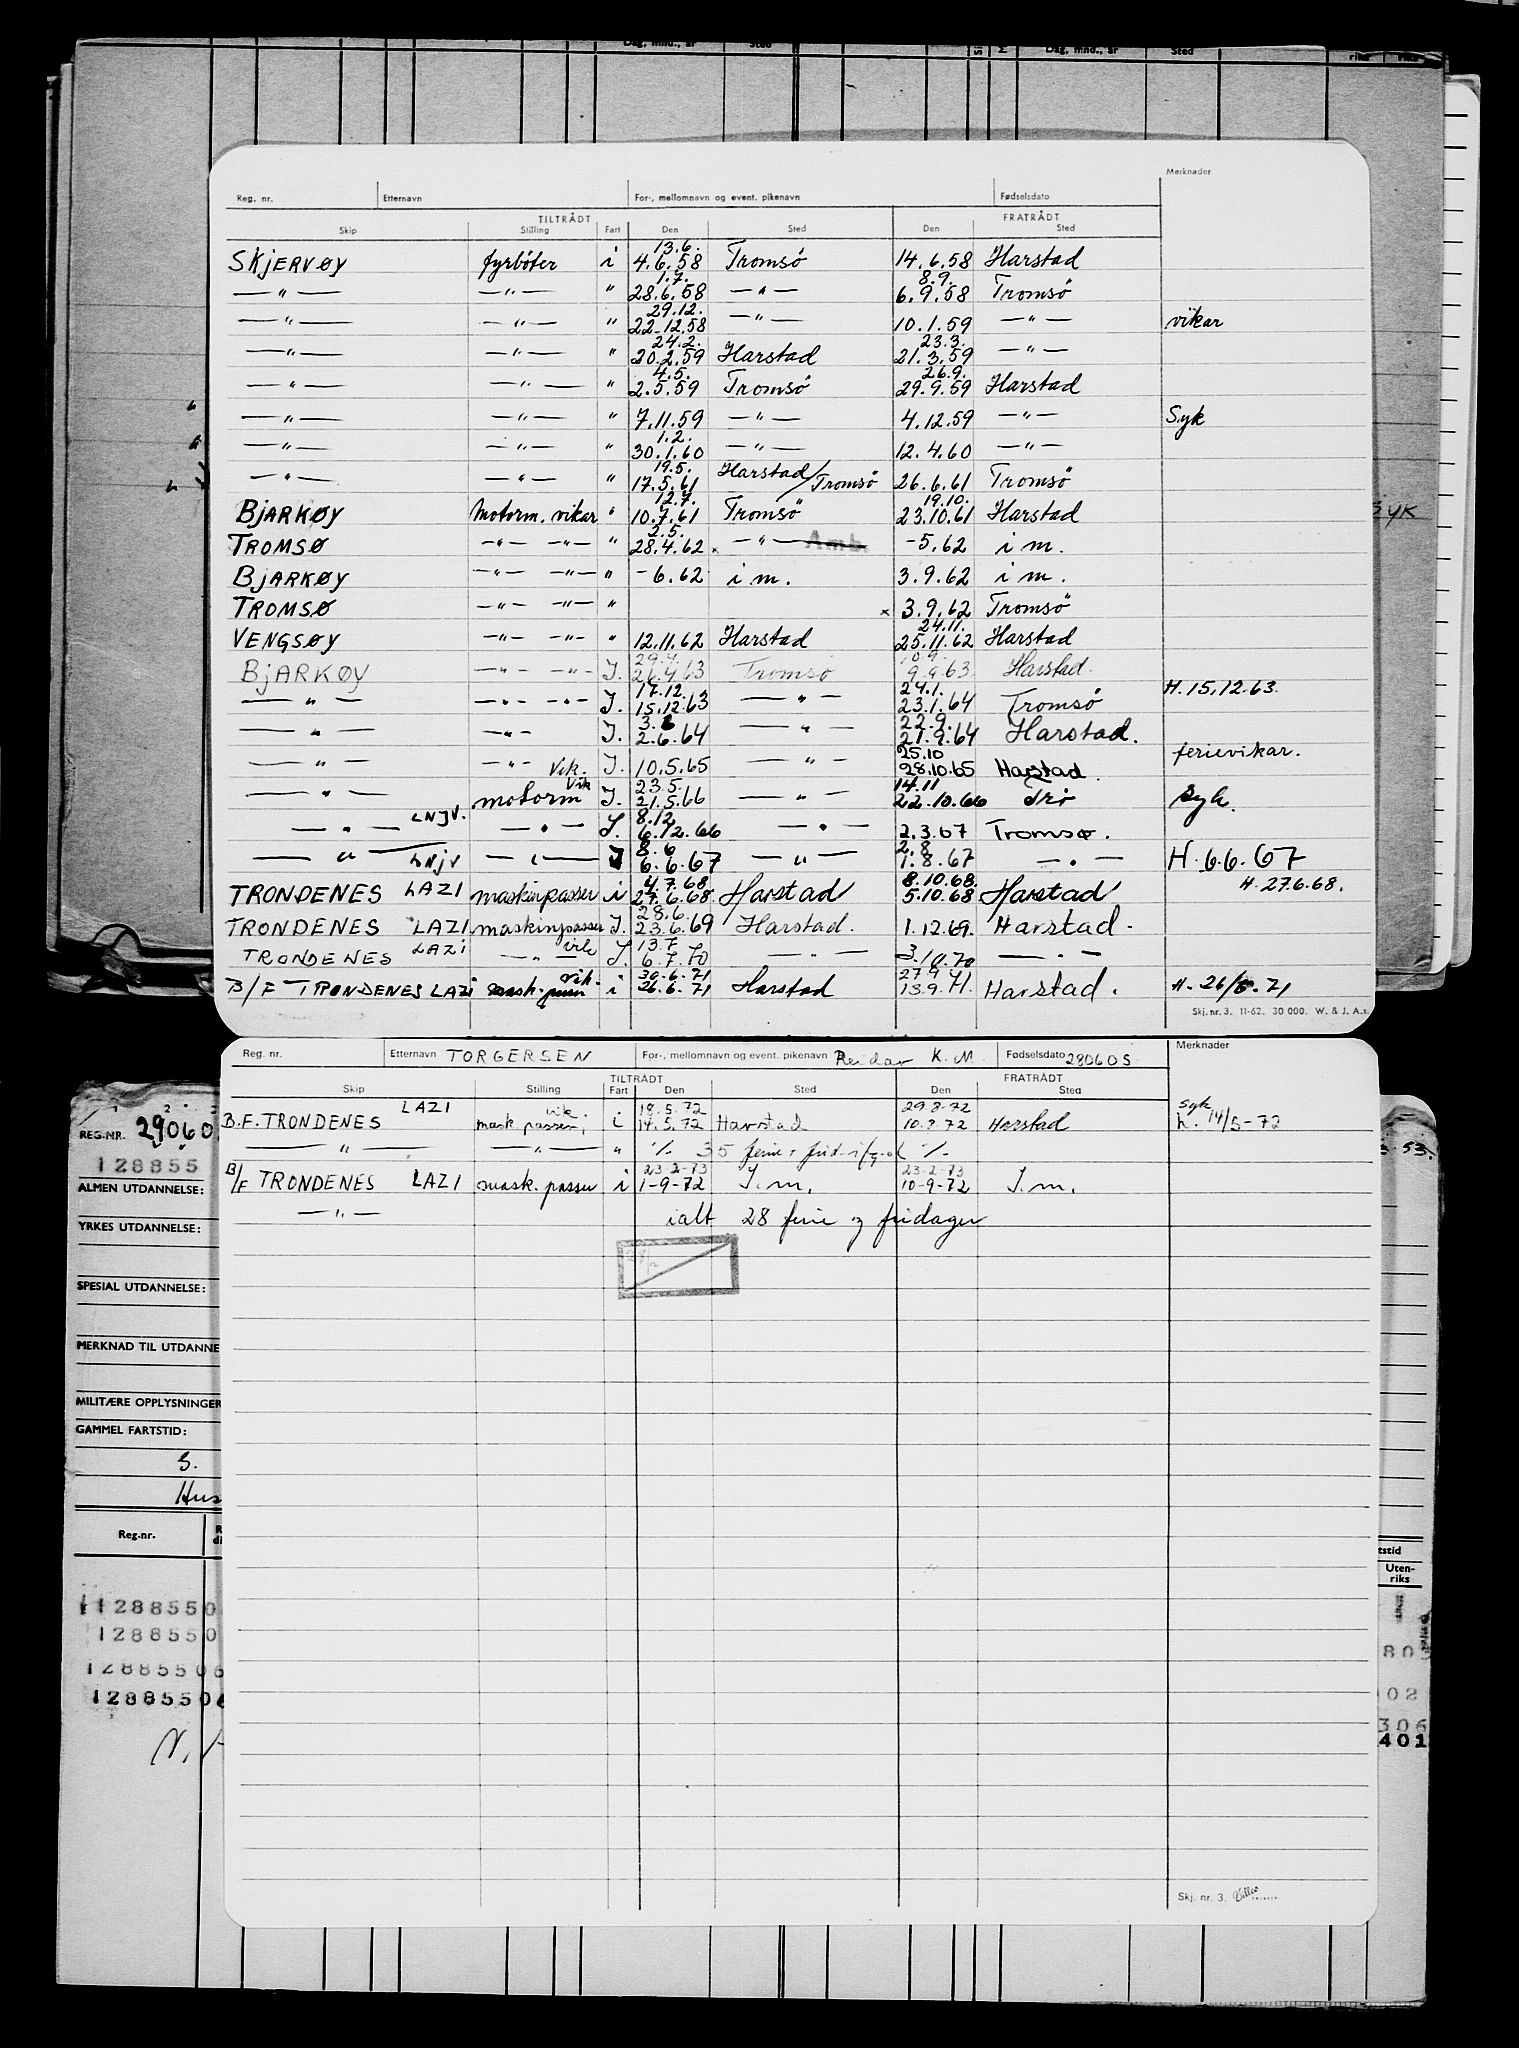 Dag, mnd., år Sted Dag, mnd., år Sted
Merknader
Reg. nr. Etternavn For-, mellomnavn og event. pikenavn Fødselsdato
TILTRÅDT FRATRÅDT
Skip Stilling Fart Den Sted Den Sted
13.6.
SKJERVØY fyrbøter i 4.6.58 Tromsö 14.6.58 Harstad
1.7. 8.9.
— " — — " — " 28.6.58 — " — 6.9.58 Tromsö
29.12.
— " — — " — " 22.12.58 — " — 10.1.59 — " — vikar
24.2. 23.3.
— " — — " — " 20.2.59 Harstad 21.3.59 — " —
4.5. 26.9.
— " — — " — " 2.5.59 Tromsö 29.9.59 Harstad
— " — — " — " 7.11.59 — " — 4.12.59 — " — Syk
1.2.
— " — — " — " 30.1.60 — " — 12.4.60 — " —
19.5.
— " — — " — " 17.5.61 Harstad/Tromsö 26.6.61 Tromsö
12.7. 19.10.
BJARKØY Motorm. vikar " 10.7.61 Tromsö 23.10.61 Harstad
2.5.
TROMSØ — " — — " — " 28.4.62 x — " — Amb. -5.62 i m.
BJARKØY — " — — " — " -6.62 i m. 3.9.62 i m.
TROMSØ — " — — " — " x 3.9.62 Tromsö
24.11.
VENGSØY — " — — " — " 12.11.62 Harstad 25.11.62 Harstad
29.4.
BJARKØY — " — — " — J. 26.4.63 Tromsö 9.9.63 Harstad
17.12. 24.1. H. 15.12.63.
— " — — " — — " — J. 15.12.63 — " — 23.1.64 Tromsö
22.9.
— " — — " — J. 2.6.64 — " — 21.9.64 Harstad.
25.10 ferievikar.
— " — — " — Vik. J. 10.5.65 — " — 28.10.65 Harstad.
Vik 23.5. 14.11
— " — motorm J. 21.5.66 — " — 22.10.66 Syk.
LNJV. 8.12
— " — — " — J. 6.12.66 — " — 2.3.67 Tromsø.
8.6 2.8
— " — LNJV — " — J 6.6.67 — " — 1.8.67 — " — H. 6.6.67
4.7.68 8.10.68.
TRONDENES LAZI maskinpasser i 27.6.68. Harstad 5.10.68 Harstad H. 27.6.68.
28.6.
TRONDENES LAZI maskinpasser J. 23.6.69 Harstad. 1.12.69. Harstad.
vik 13.7
TRONDENES LAZI — " — J. 6.7.70 — " — 3.10.70 — " —
vik. 30.6.71 27.9
B/F TRONDENES LAZI mask. passer i 26.6.71 Harstad 13.9.71. Harstad. H. 26/6.71
Skj. nr. 3. 11-62. 30 000. W. & J. A.s.
Reg. nr. Etternavn TORGERSEN For-, mellomnavn og event. pikenavn Reidar K. M. Fødselsdato 280605 Merknader
TILTRÅDT FRATRÅDT
Skip Stilling Fart Den Sted Den Sted
LAZI vik. 18.5.72 29.8.72 syk
B.F. TRONDENES mask passer, i 14.5.72 Harstad 10.8.72 Harstad h. 14/5-72
— " — — " — " ./. 35 ferie ./.
23-2-73 23-2-73
B/F TRONDENES LAZI mask. passer i 1-9-72 J. m. 10-9-72 J. m.
— " — ialt 28 ferie og fridager
Skj. nr. 3.
REG.NR. 29060
128855
ALMEN UTDANNELSE:
YRKES UTDANNELSE:
SPESIAL UTDANNELSE:
MERKNAD TIL UTDANNE
MILITÆRE OPPLYSNINGER
GAMMEL FARTSTID:
S.
Hus
Reg.nr.
Uten-
riks
1288550
1288550
12885506
12885506
802
02
306
401